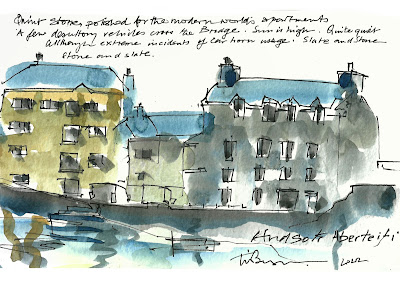 Quint Stones, potched for the modern worlds apartments
A few desultory vehicles cross the Bridge. Sun is high. Quite quiet
although extreme incidents of car horn usage. Slate and Stone
Stone and slate.
Aberteifi
2022